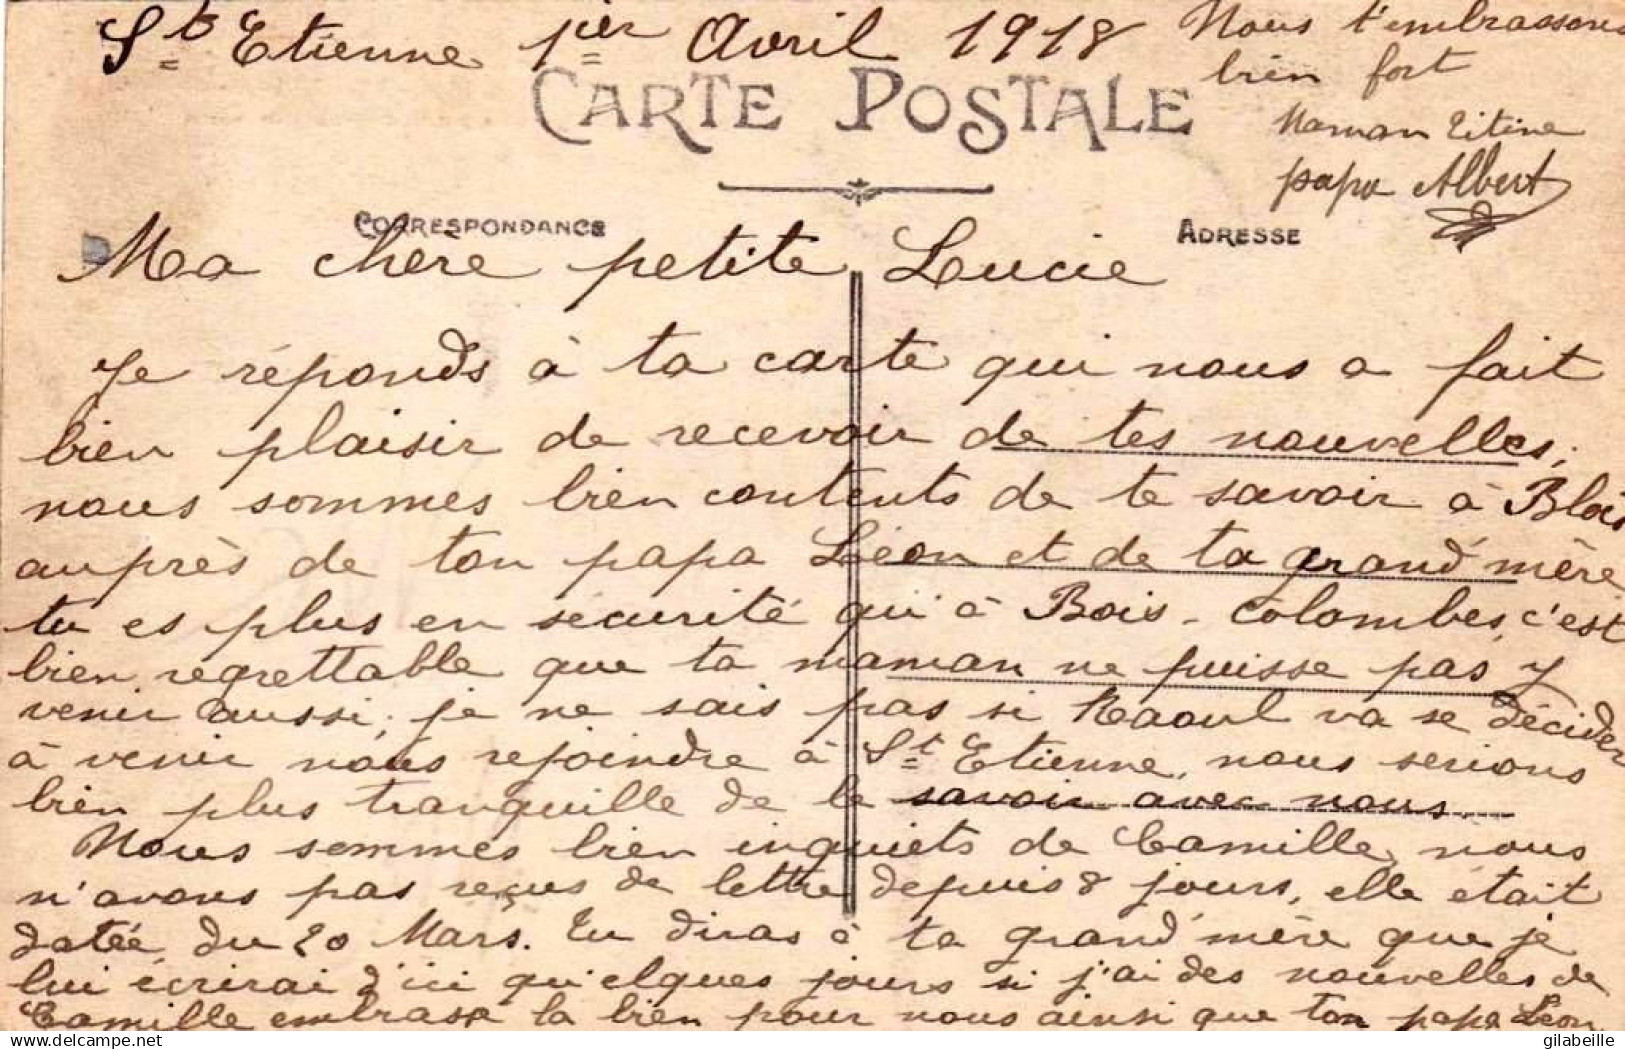 St Etienne 1er Avril 1918
CARTE POSTALE
CORRESPONDANCE
ADRESSE
Ma chère petite Lucie
Je réponds à ta carte qui nous a fait
bien plaisir de recevoir de tes nouvelles,
nous sommes bien contents de te savoir à Blois
auprès de ton papa Léon et de ta grand'mère
tu es plus en sécurité qu'à Bois-Colombes, c'est
bien regrettable que ta maman ne puisse pas y
venir aussi, je ne sais pas si Raoul va se décider
à venir nous rejoindre à St Etienne, nous serions
bien plus tranquille de le savoir avec nous.
Nous sommes bien inquiets de Camille, nous
n'avons pas reçus de lettre depuis 8 jours, elle était
datée du 20 Mars. Tu diras à ta grand'mère que je
lui écrirai d'ici quelques jours si j'ai des nouvelles de
Camille embrasse la bien pour nous ainsi que ton papa Léon
Nous t'embrassons
bien fort
Maman Titine
papa Albert
delcampe.net
gilabeille